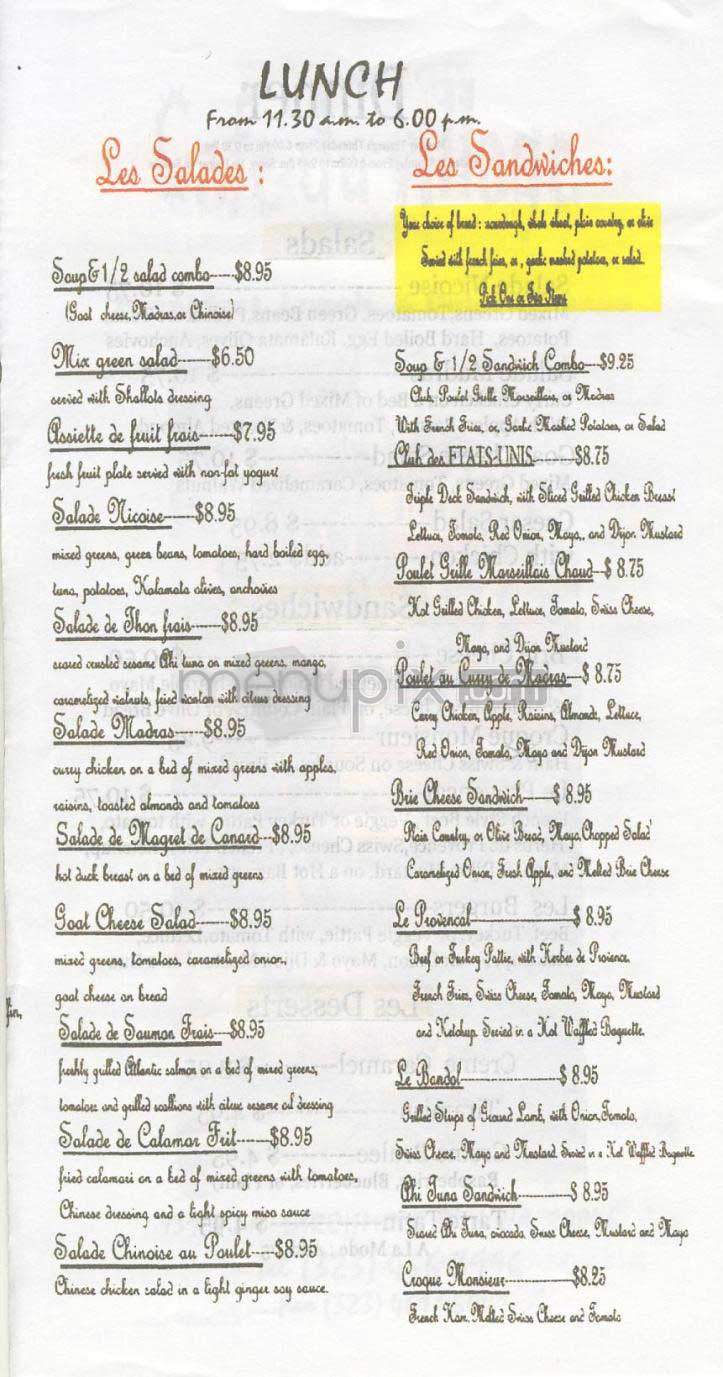 LUNCH
From 11.30 a.m. to 6.00 p.m.
Les Salades :
Soup & 1/2 salad combo-----$8.95
(Goat cheese, Madras, or Chinoise)
Mix green salad-------$6.50
served with Shallots dressing
Assiette de fruit frais-------$7.95
fresh fruit plate served with non-fat yogurt
Salade Nicoise------$8.95
mixed greens, green beans, tomatoes, hard boiled egg,
tuna, potatoes, Kalamata olives, anchovies
Salade de Thon frais-----$8.95
seared crusted sesame Ahi tuna on mixed greens, mango,
caramelized walnuts, fried wonton with citrus dressing
Salade Madras------$8.95
curry chicken on a bed of mixed greens with apples,
raisins, toasted almonds and tomatoes
Salade de Magret de Canard--$8.95
hot duck breast on a bed of mixed greens
Goat Cheese Salad------$8.95
mixed greens, tomatoes, caramelized onion,
goat cheese on bread
Salade de Saumon Frais---$8.95
freshly grilled Atlantic salmon on a bed of mixed greens,
tomatoes and grilled scallions with citrus sesame oil dressing
Salade de Calamar Frit------$8.95
fried calamari on a bed of mixed greens with tomatoes,
Chinese dressing and a light spicy miso sauce
Salade Chinoise au Poulet----$8.95
Chinese chicken salad in a light ginger soy sauce.
Les Sandwiches:
Your choice of bread : sourdough, whole wheat, plain country, or olive
Served with french fries, or, garlic mashed potatoes, or salad.
Soup & 1/2 Sandwich Combo---$9.25
Club, Poulet Grille Marseillais, or Madras
With French Fries, or Garlic Mashed Potatoes, or Salad
Club des ETATS-UNIS--------$8.75
Triple Deck Sandwich, with Sliced Grilled Chicken Breast
Lettuce, Tomato, Red Onion, Mayo,, and Dijon Mustard
Poulet Grille Marseillais Chaud--$ 8.75
Hot Grilled Chicken, Lettuce, Tomato, Swiss Cheese,
Mayo, and Dijon Mustard
Poulet au Curry de Madras---$ 8.75
Curry Chicken, Apple, Raisins, Almonds, Lettuce,
Red Onion, Tomato, Mayo and Dijon Mustard
Brie Cheese Sandwich------$ 8.95
Plain Country, or Olive Bread, Mayo, Chopped Salad
Caramelized Onion, Fresh Apple, and Melted Brie Cheese
Le Provencal------------------$ 8.95
Beef or Turkey Pattie, with Herbes de Provence,
French Fries, Swiss Cheese, Tomato, Mayo, Mustard
and Ketchup. Served in a Hot Waffled Baguette.
Le Bandol------------------$ 8.95
Grilled Strips of Ground Lamb, with Onion, Tomato,
Swiss Cheese, Mayo and Mustard. Served in a Hot Waffled Baguette.
Ahi Tuna Sandwich---------$ 8.95
Seared Ahi Tuna, avocado, Swiss Cheese, Mustard and Mayo
Croque Monsieur-----------$8.25
French Ham, Melted Swiss Cheese and Tomato
menupix